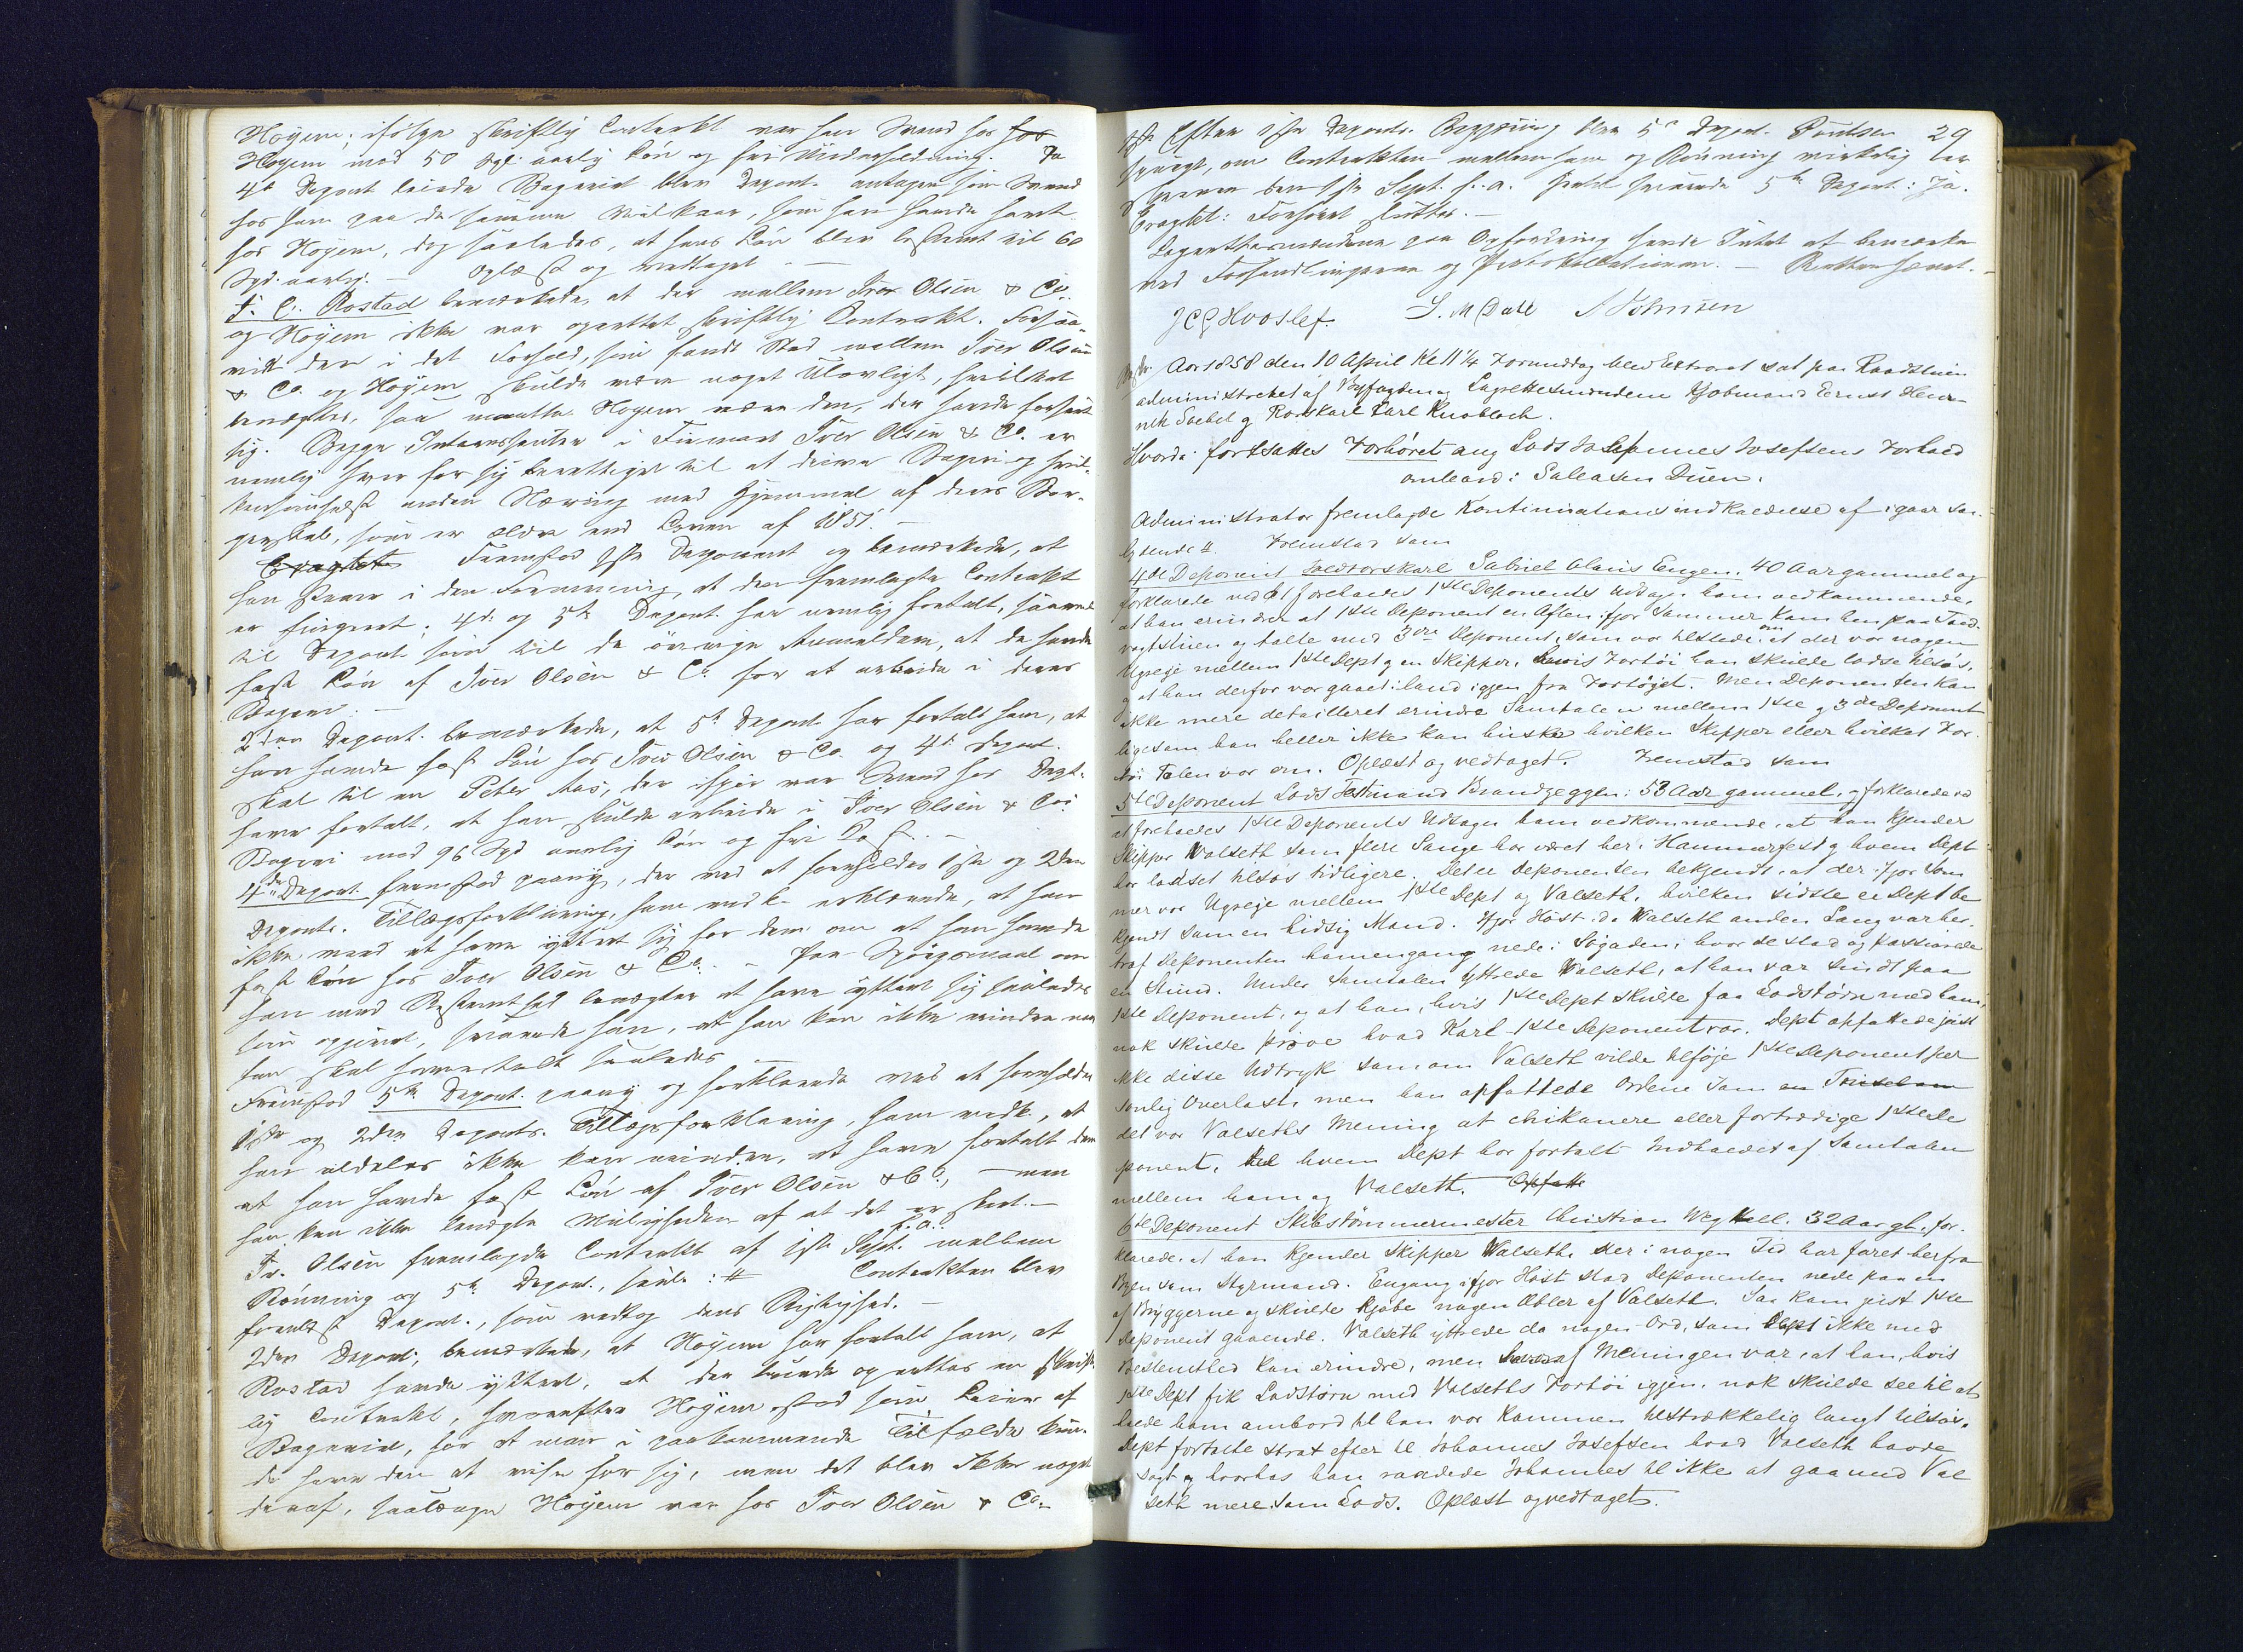 Høyem; ifølge skriftlig Contrakt var han Svend hos
Høyem mod 50 Spd. aarlig Løn og fri Underholdning. Da
4de Deponent leiede Bageriet blev Deponent antagen som Svend
hos ham paa de samme Vilkaar, som han havde havt
hos Høyem, dog saaledes, at hans Løn blev bestemt til 60
Spd. aarlig. — Oplæst og vedtaget. —
F. C. Rostad bemærkede, at der mellem Iver Olsen & Co.
og Høyem ikke var oprettet skriftlig Contrakt. Forsaa-
vidt der i det Forhold, som fandt Sted mellem Iver Olsen
& Co. og Høyem skulde være noget Ulovligt, hvilket
benægtes, saa maatte Høyem være den, der havde forseet
sig. Begge Interessenter i Firmaet Iver Olsen & Co. er
nemlig hver for sig berettiget til at drive Bageri og hvil-
kensomhelst anden Næring med Hjemmel af deres Bor-
gerskab, som er ældre end Loven af 1857. —
Eragtet Fremstod 1ste Deponent og bemærkede, at
han staar i den Formening, at den fremlagte Contrakt
er fingeret; 4de og 5te Deponent har nemlig fortalt, saavel
til Deponent som til de øvrige Anmeldere, at de havde
fast Løn af Iver Olsen & Co. for at arbeide i deres
Bageri. —
2den Deponent bemærkede, at 5te Deponent har fortalt ham, at
han havde fast Løn hos Iver Olsen & Co. og 4de Deponent
skal til en Peter Aas, der ifjor var Svend hos Dept.
have fortalt, at han skulde arbeide i Iver Olsen & Co's
Bageri mod 96 Spd aarlig Løn og fri Kost. —
4de Deponent fremstod paany, der ved at foreholdes 1ste og 2den
Deponts. Tillægsforklaring, ham vedk. erklærede, at han
ikke veed at have yttret sig for dem om at han havde
fast Løn hos Iver Olsen & Co. — Paa Spørgsmaal om
han med Bestemthed benægter at have yttret sig saaledes
som opgivet, svarede han, at han kan ikke erindre om
han skal have talt saaledes —
Fremstod 5te Deponent paany og forklarede ved at foreholdes
1ste og 2den Deponts. Tillægsforklaring, ham vedk., at
han aldeles ikke kan erindre, at have fortalt dem
at han havde fast Løn af Iver Olsen & Co., — men
han kan ikke benægte Muligheden af at det er skeet. —
Iv. Olsen fremlagde Contrakt af 1ste Sept. f. a. mellem
Rønning og 5te Deponent, saal: # Contrakten blev
forelæst Deponent, som vedtog dens Rigtighed. —
2den Deponent bemærkede, at Høyem har fortalt ham, at
Rostad havde yttret, at der burde oprettes en skrift-
lig Contrakt, hvorefter Høyem stod som Leier af
Bageriet, for at man i paakommende Tilfælde kun-
de have den at vise for sig, men det blev ikke noget
deraf, saalænge Høyem var hos Iver Olsen & Co.
29
Efter 1ste Deponts. Begjæring blev 5te Depont. Poulsen
spurgt, om Contrakten mellem ham og Rønning virkelig er
skreven den 1ste Sept. f. a. hvortil svarede 5te Deponent: Ja.
Eragtet: Forhøret sluttes. —
Lagrettesmændene paa Opfordring havde Intet at bemærke
ved Forhandlingerne og Protokollationen. — Retten hævet. —
JCG Hvoslef. S. M Dahl A Johnsen
Aar 1858 den 10 April Kl 11¼ Formiddag blev Extraret sat paa Raadstuen
administreret af Byfogden og Lagrettesmændene Kjøbmand Ernst Hen-
rik Saebel og Rorskarl Carl Knobloch.
Hvorda: fortsattes Forhøret ang Lods Johannes Josefsens Forhold
ombord i Galeasen Duen.
Administrator fremlagde Kontinuationsindkaldelse af igaar saa
lydende # Fremstod som
4de Deponent Toldrorskarl Gabriel Olaus Eugen, 40 Aar gammel og
forklarede ved at foreholdes 1ste Deponents Udsagn ham vedkommende,
at han erindrer at 1ste Deponent en Aften ifjor Sommer kom hen paa Told-
vagtstuen og talte med 3die Deponent, som var tilstede om at der var nogen
Ugreie mellem 1ste Dept og en Skipper, hvis Fartøi han skulde lodse tilsøs,
og at han derfor var gaaet iland igjen fra Fartøjet. Men Deponenten kan
ikke mere detailleret erindre Samtalen mellem 1ste og 3die Deponent
ligesom han heller ikke kan huske hvilken Skipper eller hvilket Far-
tøi Talen var om. Oplæst og vedtaget. Fremstod som
5te Deponent Lods Ferdinand Brandzeggen: 53 Aar gammel, og forklarede ved
at foreholdes 1ste Deponents Udsagn ham vedkommende, at han kjender
Skipper Valseth som flere Gange har været her i Hammerfest og hvem Dept
har lodset tilsøs tidligere. Det er Deponenten bekjendt, at der ifjor Som
mer var Ugreje mellem 1ste Dept og Valseth, hvilken sidste er Dept be
kjendt som en hidsig Mand. Ifjor Høst da Valseth anden Gang var her
traf Deponenten ham engang nede i Søgaden, hvor de stod og passiarede
en Stund. Under Samtalen yttrede Valseth, at han var sindt paa
1ste Deponent, og at han, hvis 1ste Dept skulde faa Lodstørn med ham,
nok skulde prøve hvad Karl 1ste Deponent var. Dept opfattede just
ikke disse Udtryk som om Valseth vilde tilføje 1ste Deponent per
sonlig Overlast, men han opfattede Ordene som en Trusel om
det var Valseths Mening at chikanere eller fortrædige 1ste De
ponent, til hvem Dept har fortalt Indholdet af Samtalen
mellem ham og Valseth. Opfatte
6te Deponent Skibstømmermester Christian Weg Kell. 32 Aar gl. for-
klarede at han kjender Skipper Valseth, der i nogen Tid har faret herfra
Byen som Styrmand. Engang ifjor Høst stod Deponenten nede paa en
af Bryggerne og skulde kjøbe nogen Æbler af Valseth. Saa kom just 1ste
Deponent gaaende. Valseth yttrede da nogen Ord, som Dept ikke med
Bestemthed kan erindre, men hvoraf Meningen var, at han, hvis
1ste Dept fik Lodstørn med Valseths Fartøi igjen, nok skulde see til at
holde ham ombord til han var kommen tilstrækkelig langt tilsøs.
Dept fortalte strax efter til Johannes Josefsen hvad Valseth havde
sagt og hvorhos han raadede Johannes til ikke at gaa med Val
seth mere som Lods. Oplæst og vedtaget.